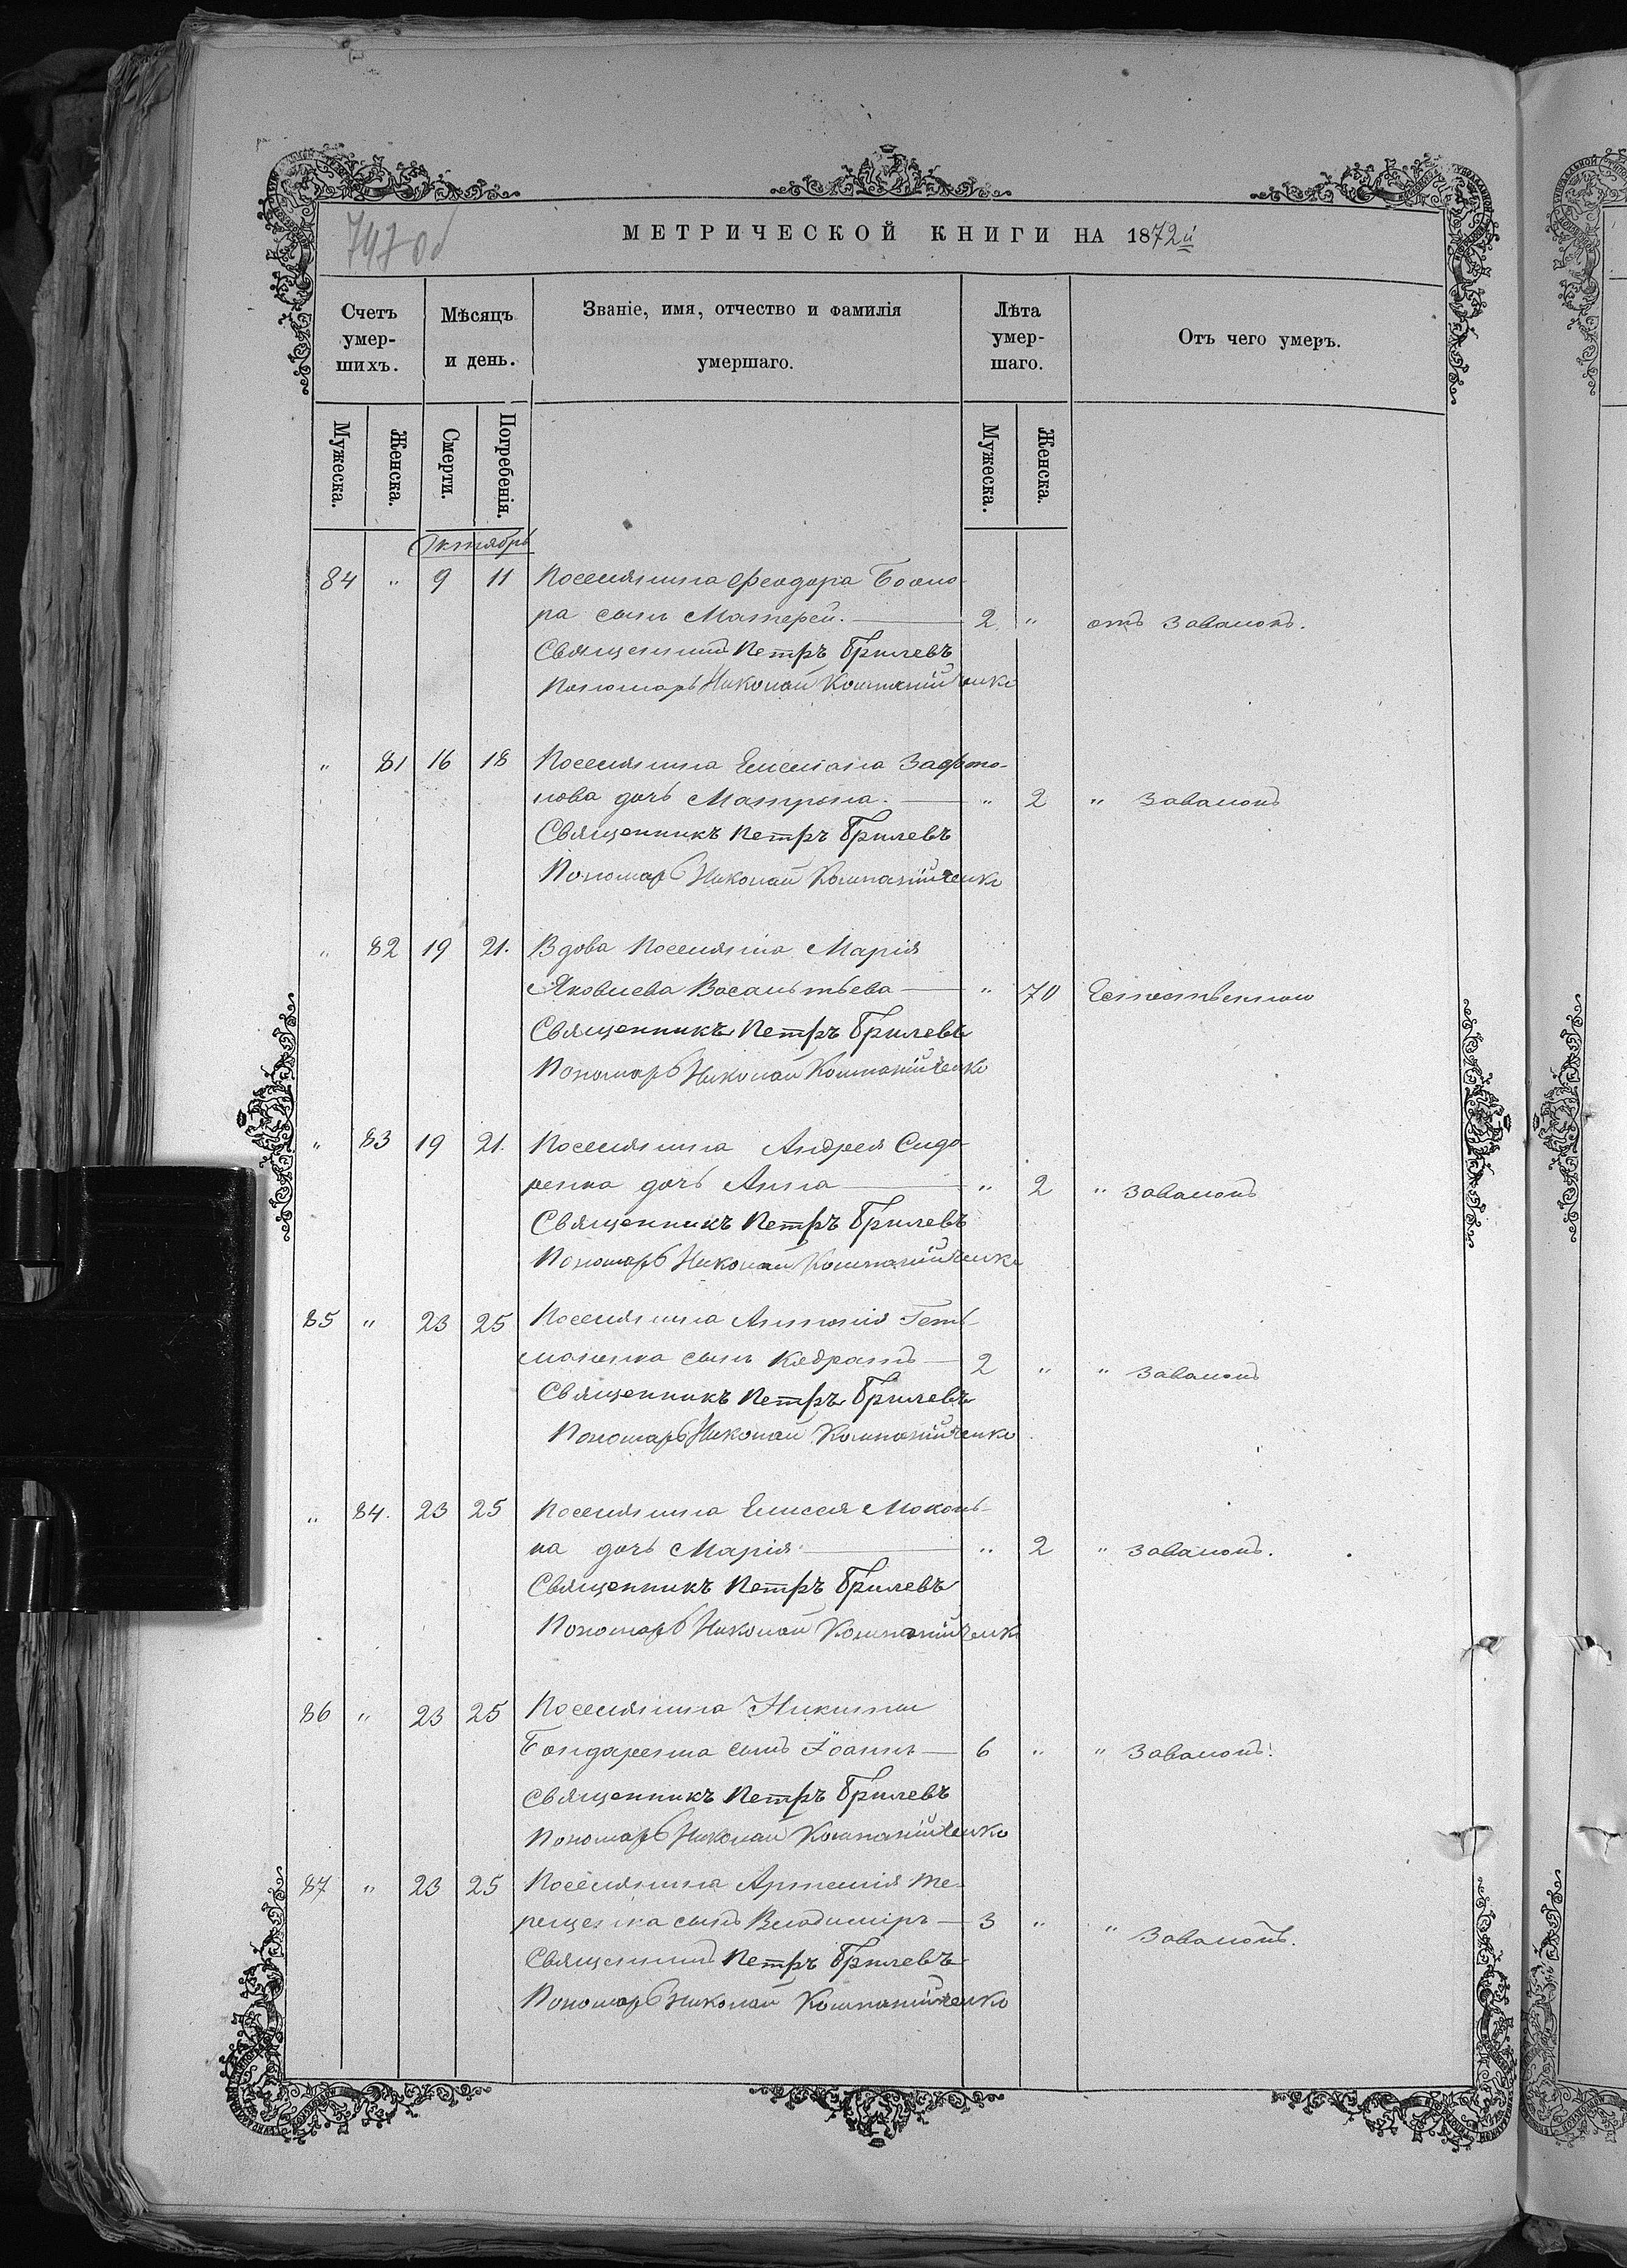 747 об
МЕТРИЧЕСКОЙ КНИГИ НА 1872й
Счетъ умер-шихъ.
Мѣсяцъ и день.
Званіе, имя, отчество и фамилія умершаго.
Лѣта умер-шаго.
Отъ чего умеръ.
Мужеска.
Женска.
Смерти.
Погребенія.
Мужеска.
Женска.
Октябрь
84 " 9 11 Поселянина Феодора
ра сынъ 2 " отъ завалокъ.
Священникъ Петръ Брилевъ
Пономарь Николай Компанійченко
" 81 16 18 Поселянина Емеліана
нова дочь Матрона. " 2 " завалокъ
Священникъ Петръ Брилевъ
Пономарь Николай Компанійченко
" 82 19 21. Вдова поселянка Марія
Яковлева " 70 Естественною
Священникъ Петръ Брилевъ
Пономарь Николай Компанійченко
" 83 19 21. Поселянина Андрея Сидо-
ренка дочь Анна " 2 " завалокъ
Священникъ Петръ Брилевъ
Пономарь Николай Компанійченко
85 " 23 25 Поселянина Антонія Геть-
маненка сынъ Кодратъ 2 " " завалокъ
Священникъ Петръ Брилевъ
Пономарь Николай Компанійченко
" 84. 23 25 Поселянина Елисея
на дочь Марія " 2 " завалокъ.
Священникъ Петръ Брилевъ
Пономарь Николай Компанійченко
86 " 23 25 Поселянина Никиты
Бондаренка сынъ Іоаннъ 6 " " завалокъ.
Священникъ Петръ Брилевъ
Пономарь Николай Компанійченко
87 " 23 25 Поселянина Артемія Те-
рещенка сынъ Владиміръ 3 " " завалокъ.
Священникъ Петръ Брилевъ
Пономарь Николай Компанійченко